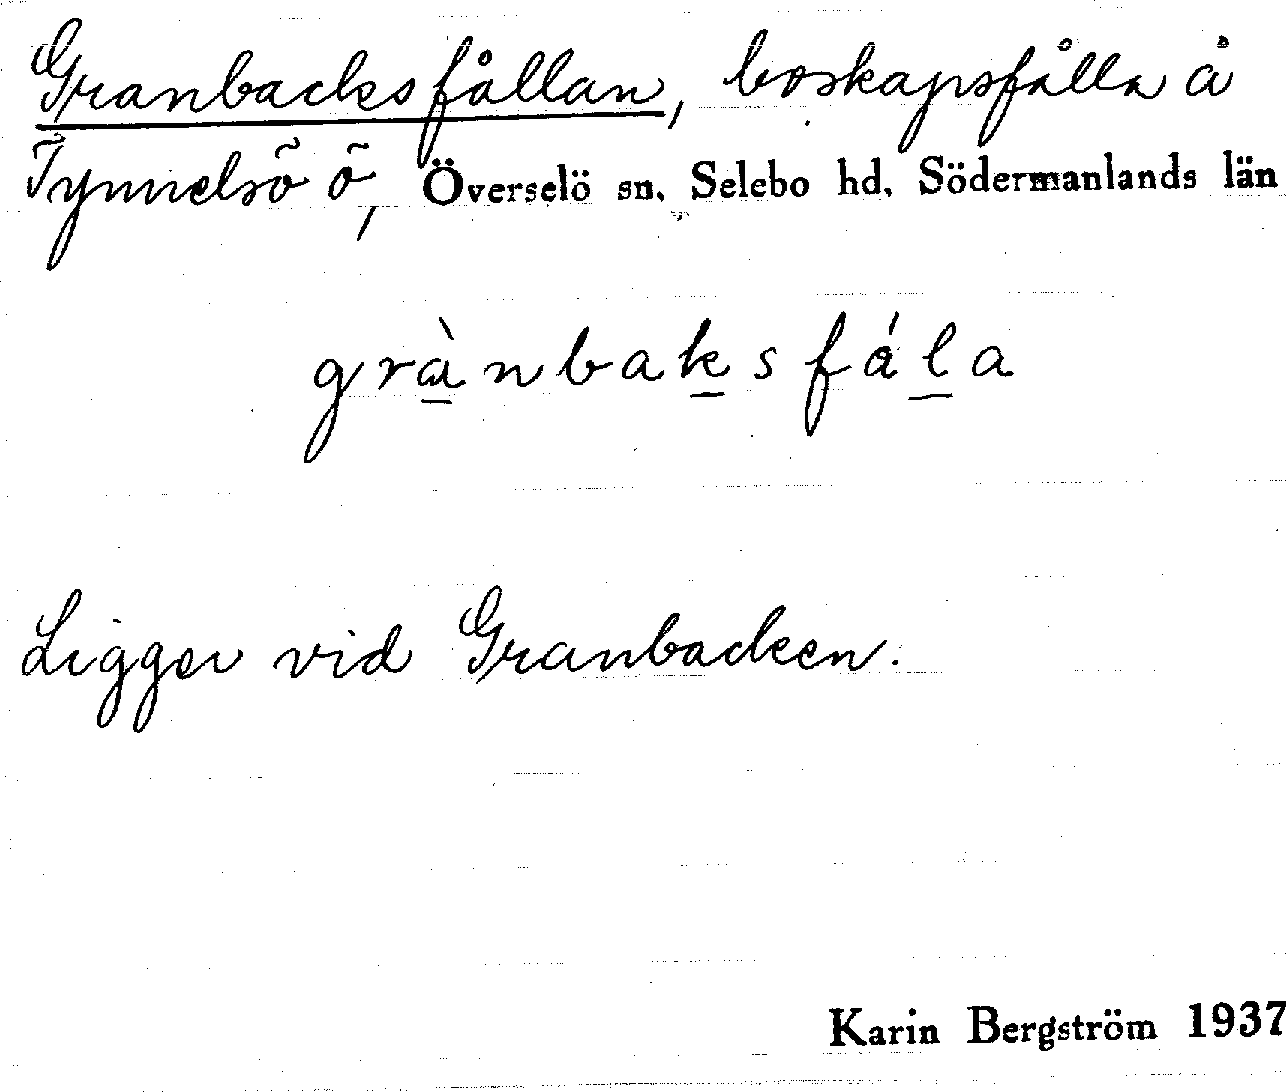 Granbacksfållan, boskapsfålla å
Tynnelsö ö, Överselö sn. Selebo hd. Södermanlands län
grànbaksfǻla
Ligger vid Granbacken.
Karin Bergström 1937